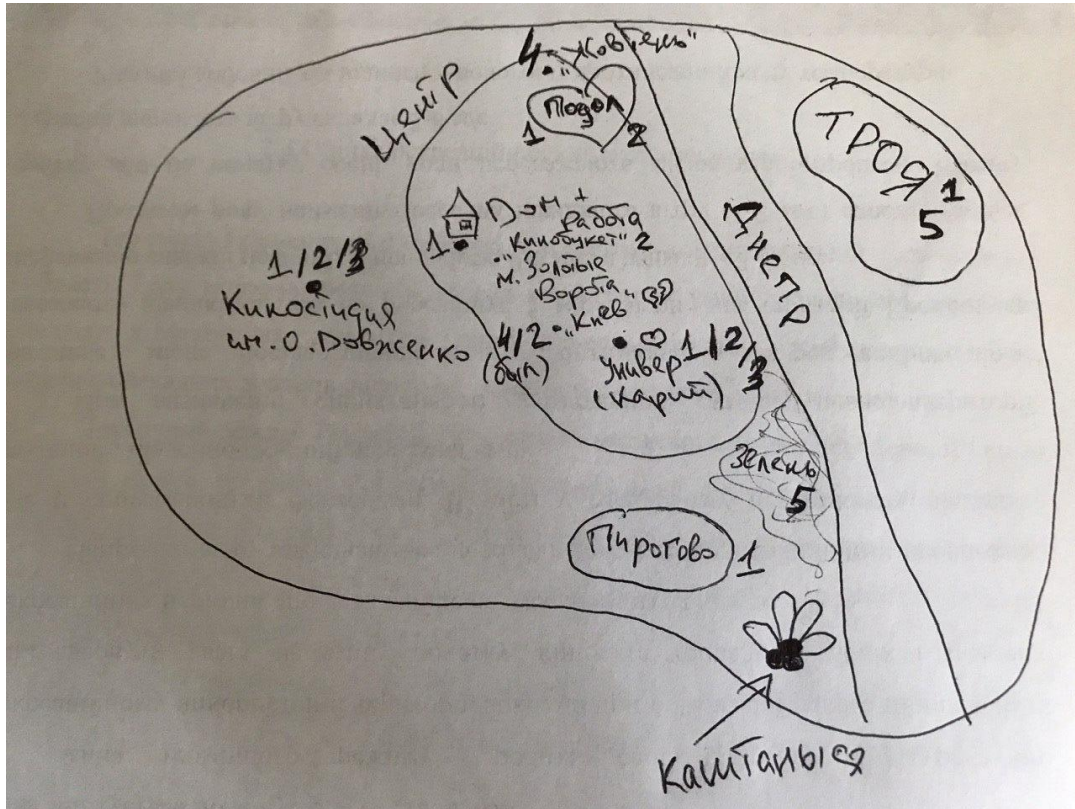 Центр
4. „Жовтень"
Подол
1 2
ТРОЯ
1
5
Днепр
1. Дом +
работа
„Кинобукет" 2
м. Золотые
Ворота
1/2/3
Киностудия
им. О. Довженко
4/2 • „Киев"
(был)
Универ 1/2/3
(Карий)
Зелень
5
Пирогово 1
Каштаны